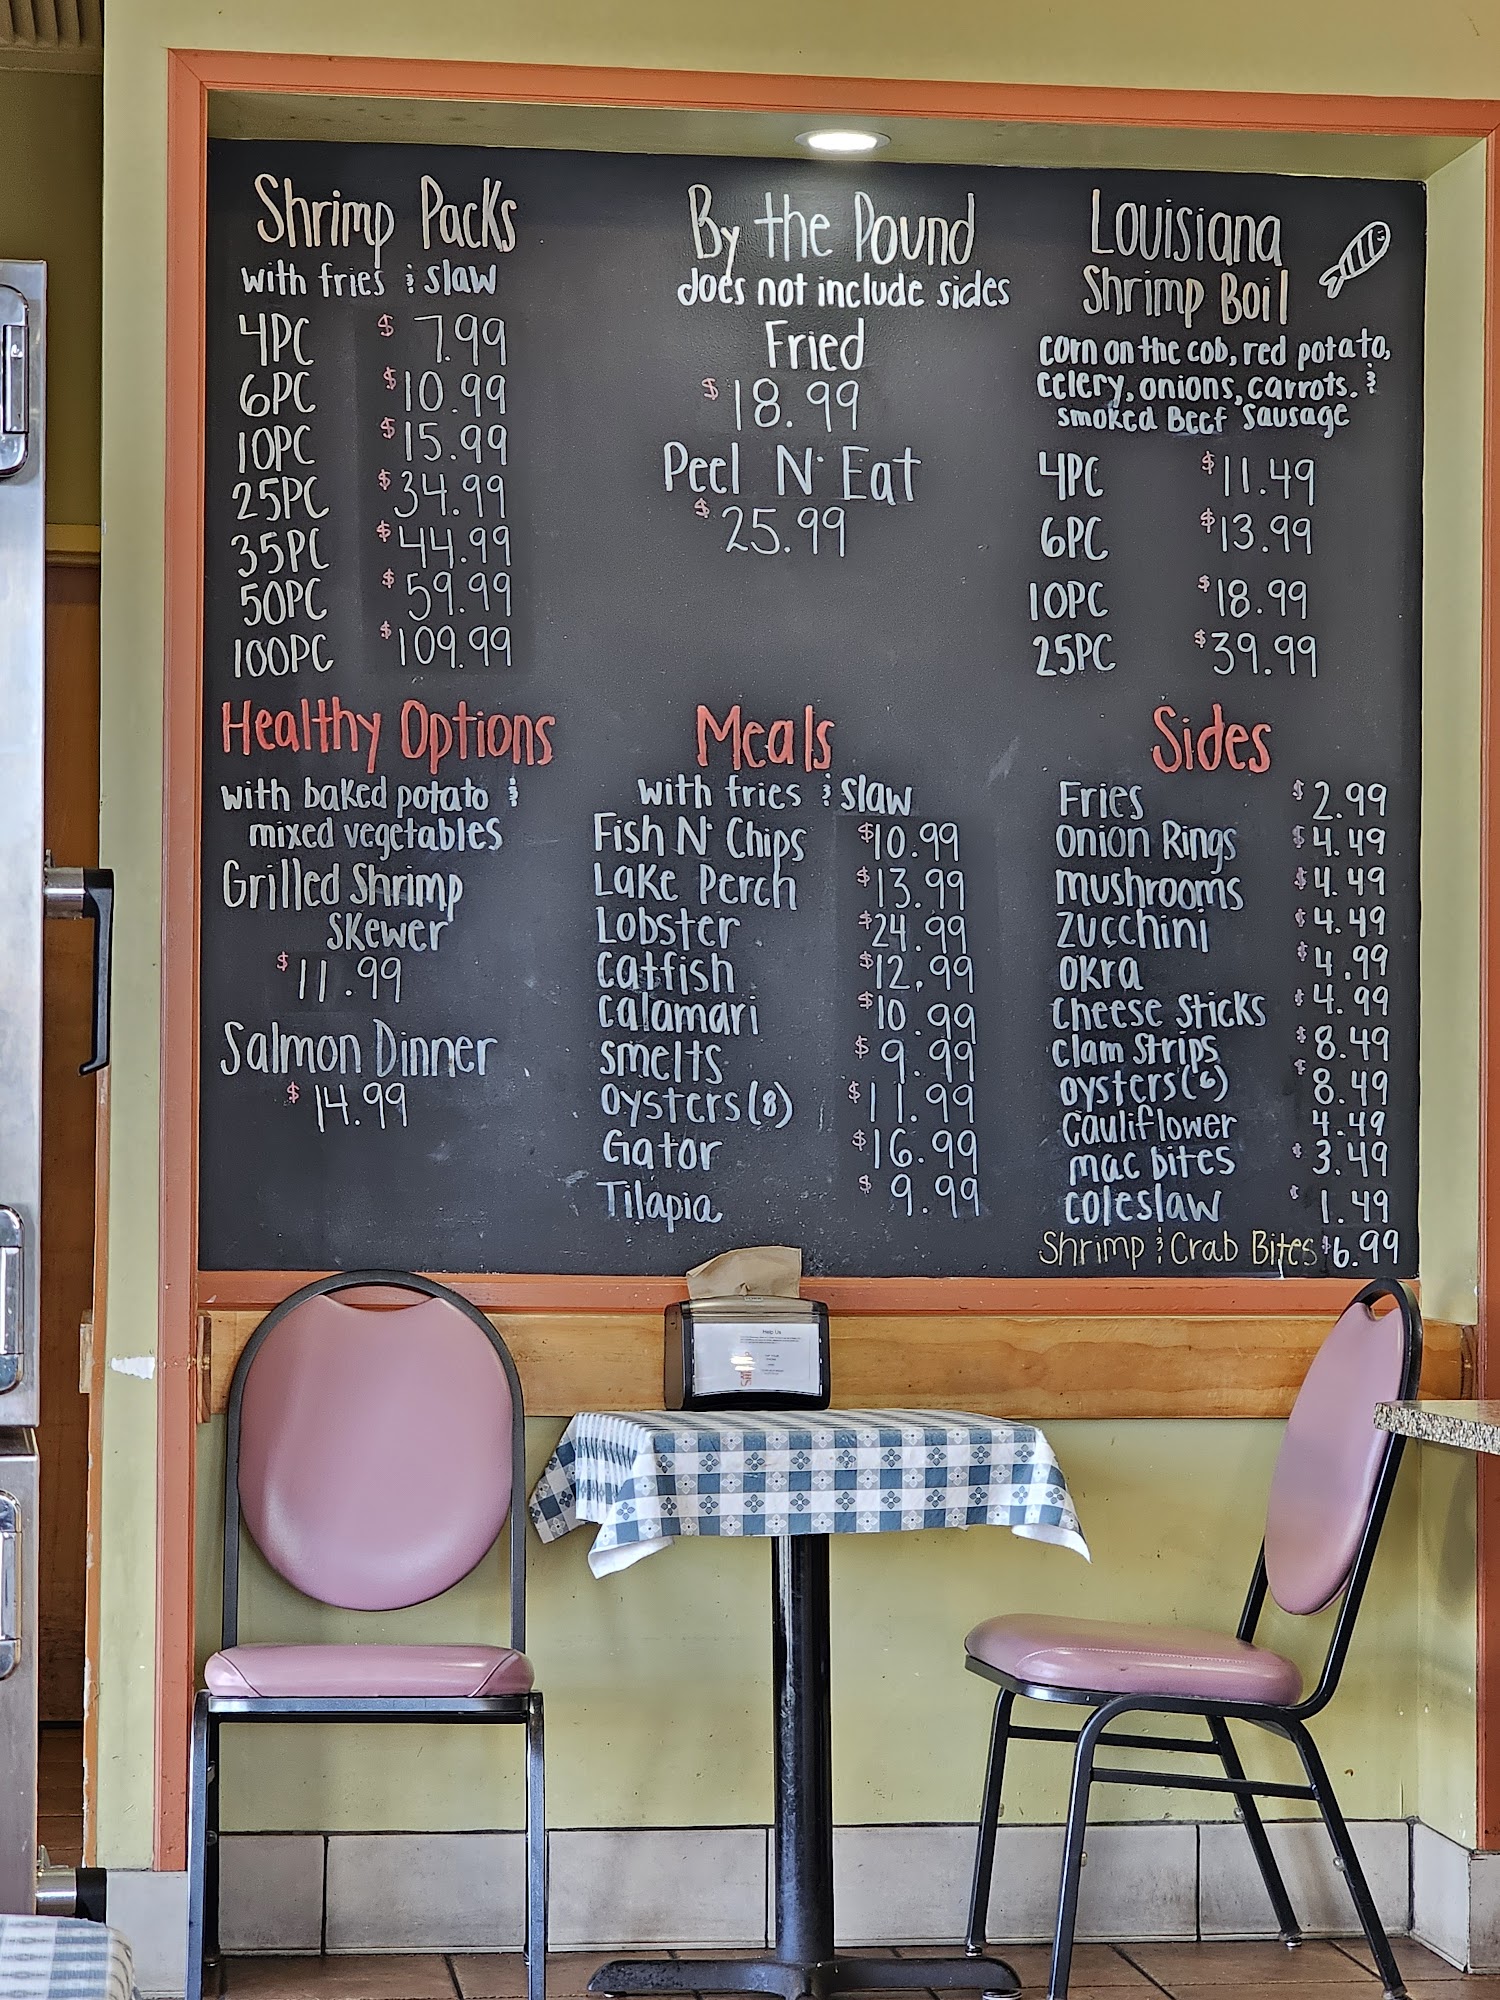 Shrimp Packs
with fries & slaw
4PC $ 7.99
6PC $10.99
10PC $15.99
25PC $34.99
35PC $44.99
50PC $59.99
100PC $109.99
By the Pound
does not include sides
Fried
$18.99
Peel N' Eat
$25.99
Louisiana
Shrimp Boil
corn on the cob, red potato,
celery, onions, carrots. &
smoked Beef Sausage
4PC $11.49
6PC $13.99
10PC $18.99
25PC $39.99
Healthy Options
with baked potato &
mixed vegetables
Grilled Shrimp
Skewer
$11.99
Salmon Dinner
$14.99
Meals
with fries & slaw
Fish N' Chips $10.99
Lake Perch $13.99
Lobster $24.99
Catfish $12.99
Calamari $10.99
Smelts $9.99
Oysters (8) $11.99
Gator $16.99
Tilapia $9.99
Sides
Fries $2.99
Onion Rings $4.49
Mushrooms $4.49
Zucchini $4.49
Okra $4.99
Cheese Sticks $4.99
Clam Strips $8.49
Oysters (6) $8.49
Cauliflower 4.49
Mac bites $3.49
Coleslaw $1.49
Shrimp & Crab Bites $6.99
Help Us